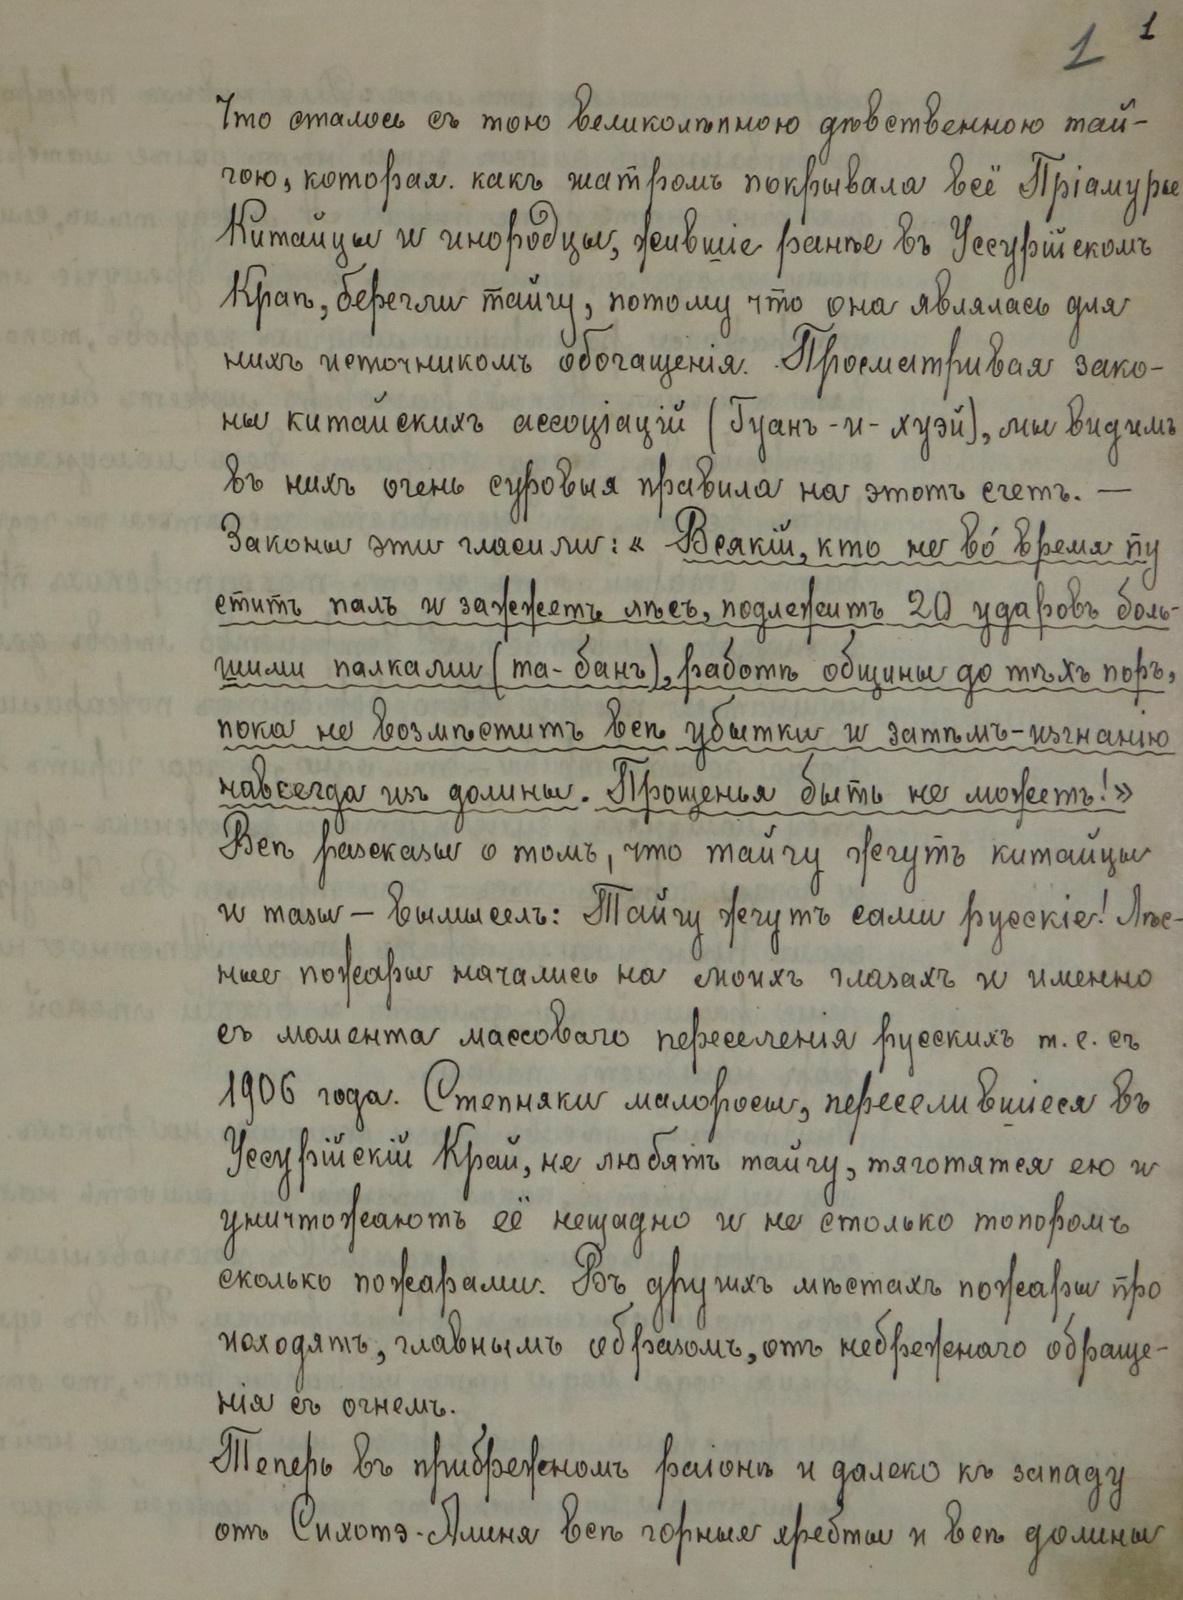 1 1
Что сталось съ тою великолѣпною дѣвственною тай-
гою, которая. какъ шатромъ покрывала всё Пріамурье
Китайцы и инородцы, жившіе ранѣе въ Уссурійскомъ
Краѣ, берегли тайгу, потому что она являлась для
нихъ источникомъ обогащенія. Просматривая зако-
ны китайскихъ ассоціацій (Гуанъ-и-хуэй), мы видимъ
въ нихъ очень суровыя правила на этотъ счетъ. —
Законы эти гласили: « Всякій, кто не во́ время пу
ститъ палъ и зажжетъ лѣсъ, подлежитъ 20 ударовъ боль-
шими палками (та-банъ), работѣ общины до тѣхъ поръ,
пока не возмѣститъ всѣ убытки и затѣмъ-изгнанію
навсегда изъ долины. Прощенья быть не можетъ!»
Всѣ разсказы о томъ, что тайгу жгутъ китайцы
и тазы — вымыселъ: Тайгу жгутъ сами русскіе! Лѣс-
ные пожары начались на моихъ глазахъ и именно
съ момента массоваго переселенія русскихъ т. е. съ
1906 года. Степняки малоросы, переселившіеся въ
Уссурійскій Край, не любятъ тайгу, тяготятся ею и
уничтожаютъ её нещадно и не столько топоромъ
сколько пожарами. Въ другихъ мѣстахъ пожары про
исходятъ, главнымъ образомъ, отъ небрежнаго обраще-
нія съ огнемъ.
Теперь въ прибрежномъ раіонѣ и далеко къ западу
отъ Сихотэ-Алиня всѣ горные хребты и всѣ долины